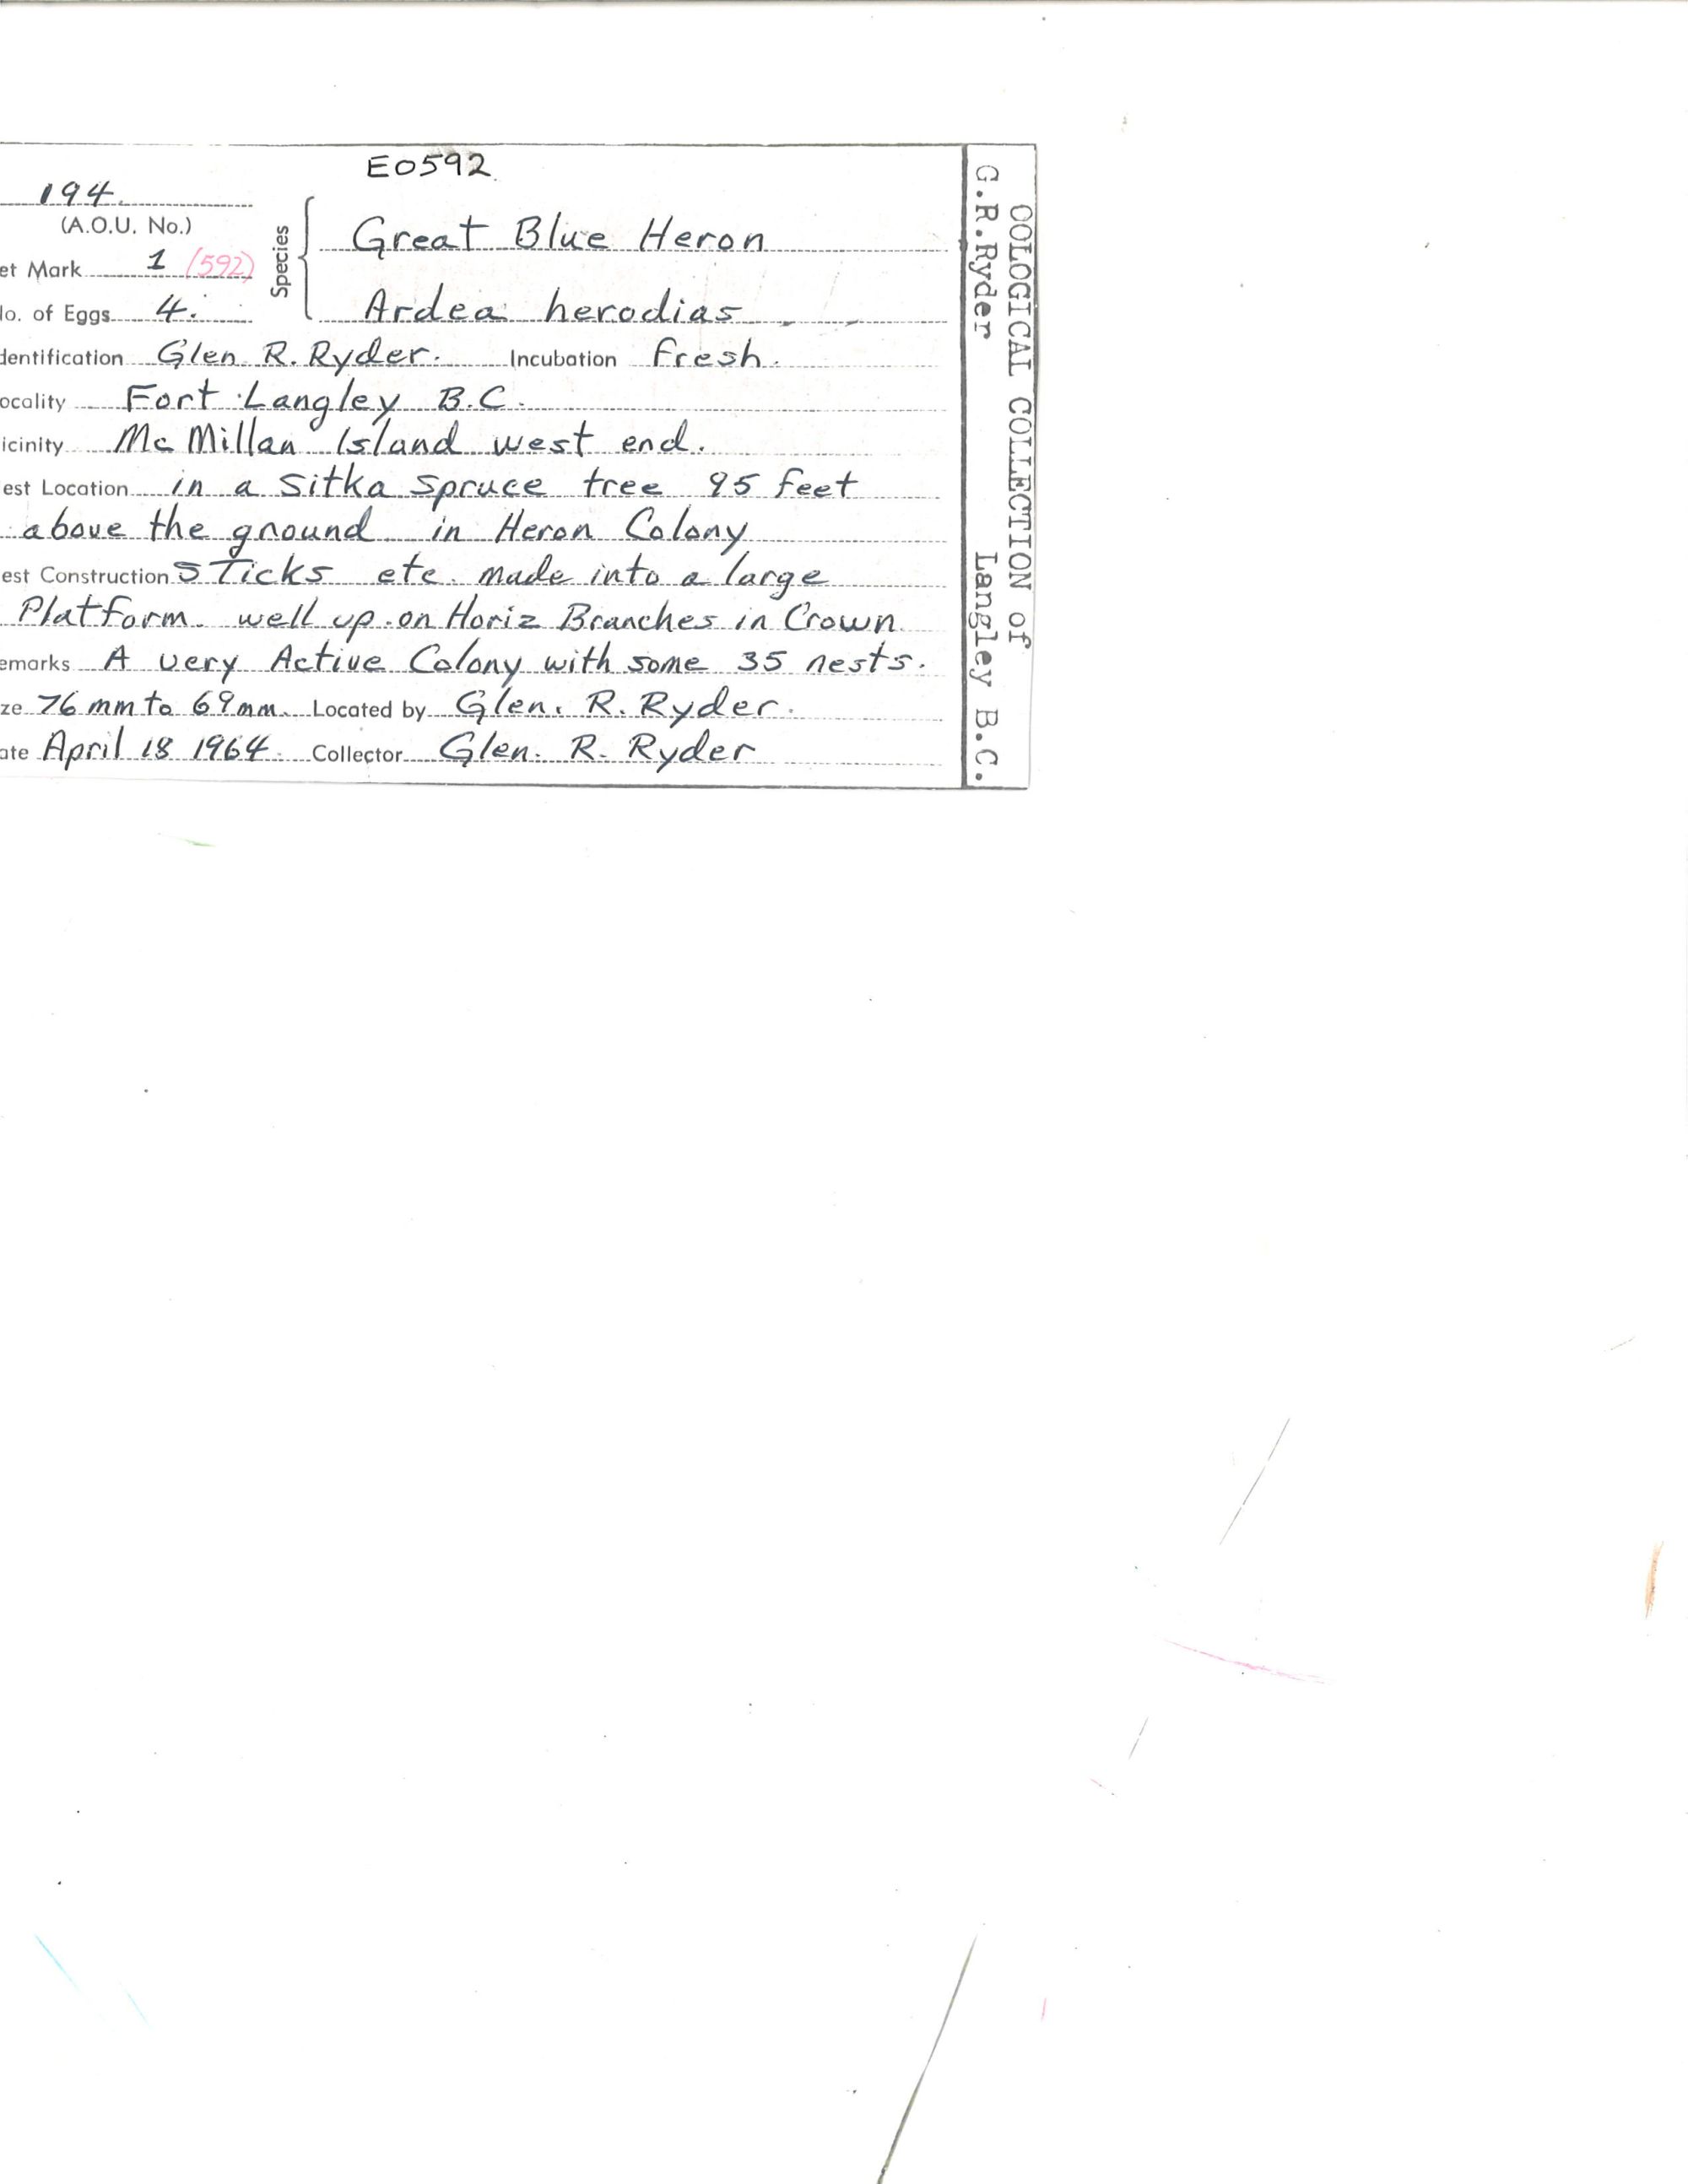 E0592
194.
(A.O.U. No.)
et Mark 1 (592)
Species
Great Blue Heron
Ardea herodias
lo. of Eggs 4.
dentification Glen R. Ryder. Incubation fresh.
ocality Fort Langley B.C.
icinity Mc Millan Island west end.
est Location in a Sitka Spruce tree 95 feet
above the ground in Heron Colony
est Construction Sticks etc. made into a large
Platform. well up on Horiz Branches in Crown
emarks A very Active Colony with some 35 nests.
ze 76 mm to 69 mm. Located by Glen. R. Ryder.
ate April 18 1964. Collector Glen. R. Ryder
OOLOGICAL COLLECTION of
G.R.Ryder Langley B.C.